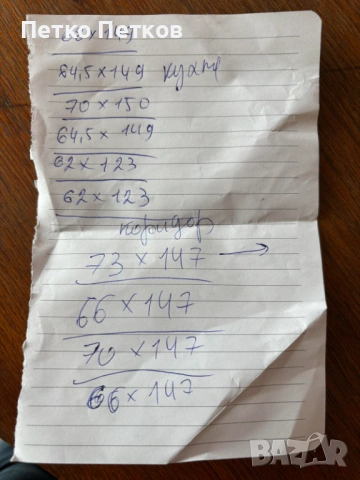 Петко Петков
66 x 149
64,5 x 149 кухня
70 x 150
64,5 x 149
62 x 123
62 x 123
коридор
73 x 147 →
66 x 147
70 x 147
66 x 147
BAZAR